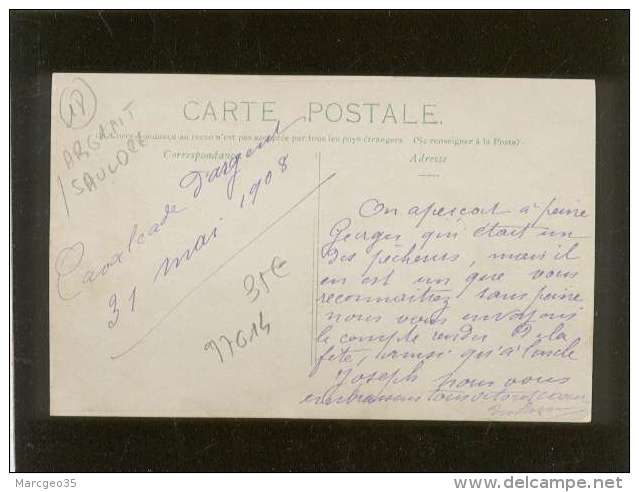 18
ARGENT
SAULDRE
CARTE POSTALE.
(Se renseigner à la Poste)
Correspondance
Adresse
Cavalcade d'argent
31 mai 1908
35€
97614
On aperçoit à peine
Georges qui était un
des pêcheurs, mais il
en est un que vous
reconnaitrez sans peine
nous vous envoyons
le compte rendu de la
fête, ainsi qu'à l'oncle
Joseph nous vous
embrassons tous
Marcgeo35
www.delcampe.net